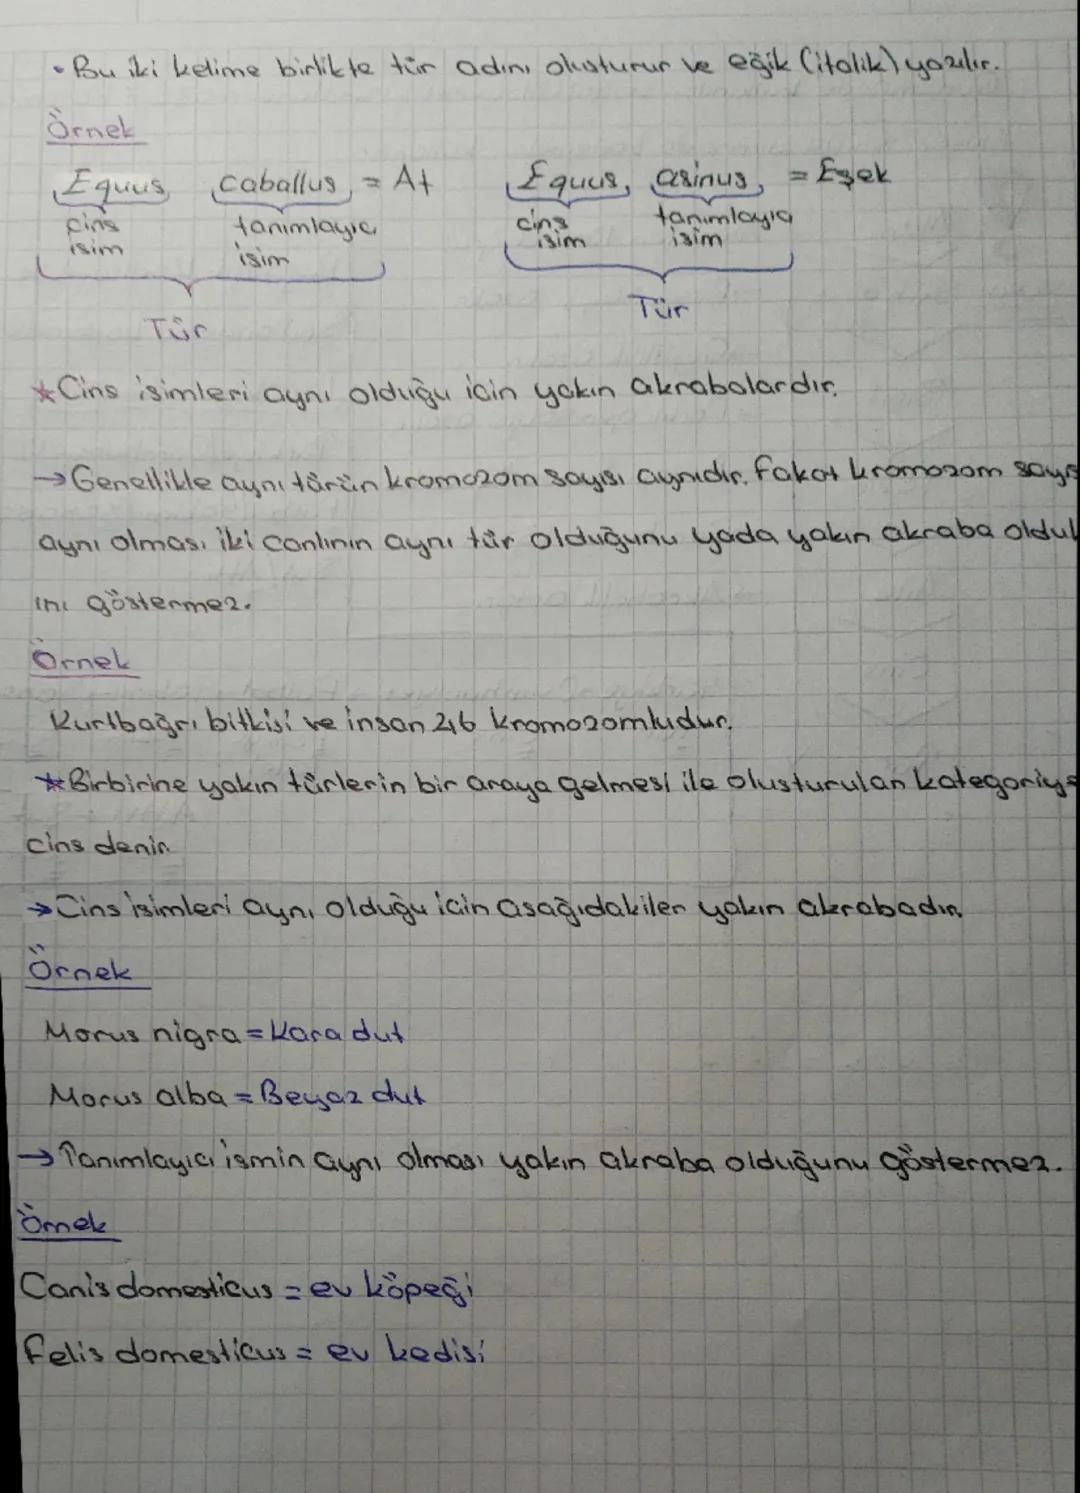 • Bu iki kelime birlikte tür adını oluşturur ve eğik (italik) yazılır.
Örnek
Equus caballus = At Equus asinus = Eşek
cins isim tanımlayıcı isim cins isim tanımlayıcı isim
Tür Tür
*Cins isimleri aynı olduğu için yakın akrabalardır.
→Genellikle aynı türün kromozom sayısı aynıdır. Fakat kromozom sayıs
aynı olması iki canlının aynı tür olduğunu yada yakın akraba olduk
ını göstermez.
Örnek
Kurtbağrı bitkisi ve insan 46 kromozomludur.
*Birbirine yakın türlerin bir araya gelmesi ile oluşturulan kategoriye
cins denir.
→Cins isimleri aynı olduğu için aşağıdakiler yakın akrabadır.
Örnek
Morus nigra = Kara dut
Morus alba = Beyaz dut
→Tanımlayıcı ismin aynı olması yakın akraba olduğunu göstermez.
Örnek
Canis domesticus = ev köpeği
Felis domesticus = ev kedisi